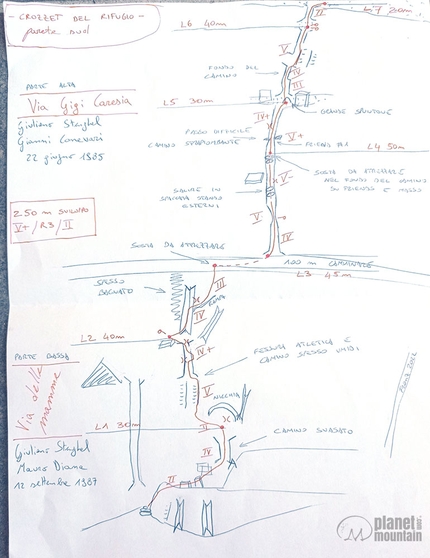 - CROZZET DEL RIFUGIO -
parete sud
L7 20m
L6 40m
II
V
FONDO DEL
CAMINO
IV
PARTE ALTA
Via Gigi Caresia
L5 30m
GRANDE SPUNTONE
Giuliano Stenghel
Gianni
22 giugno 1985
IV+
PASSO DIFFICILE
CAMINO STRAPIOMBANTE
V+
FRIEND N°1
L4 50m
SOSTA DA ATTREZZARE
NEL FONDO DEL CAMINO
SU FRIENDS E MASSO
V-
SALIRE IN
SPACCATA STANDO
ESTERNI
250 m SVILUPPO
V+ / R3 / II
V
IV
SOSTA DA ATTREZZARE
100 m CAMMINARE
L3 45m
SPESSO
BAGNATO
III
IV
L2 40m
IV+
FESSURA ATLETICA E
CAMINO SPESSO UMIDI
PARTE BASSA
Via delle
mamme
V
NICCHIA
L1 30m
II
CAMINO SVASATO
Giuliano Stenghel
Mauro Diana
12 settembre 1987
IV
II
planet
mountain